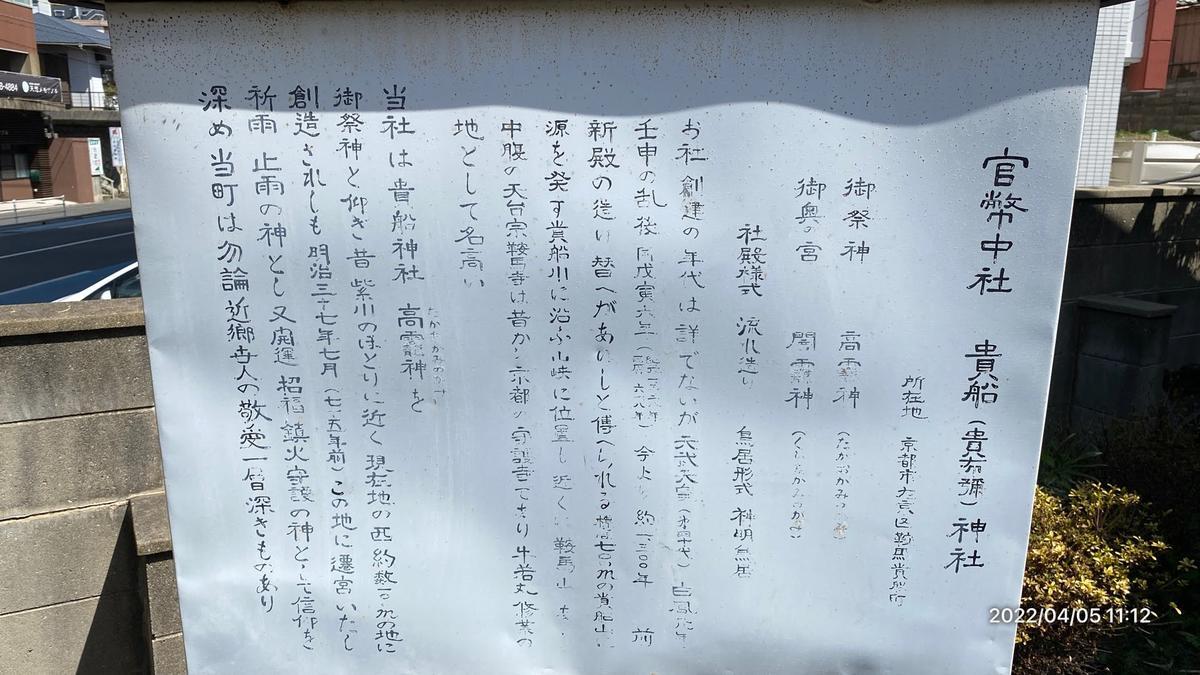 官幣中社 貴船(貴布彌)神社
所在地 京都市左京区鞍馬貴船町
御祭神 高龗神 (たかおかみのかみ)
御奥の宮 闇龗神 (くらおかみのかみ)
社殿様式 流れ造り 鳥居形式 神明鳥居
お社創建の年代は詳でないが天武天皇(第四十代)白鳳元年
壬申の乱後 同戊寅六年 今より約一三〇〇年 前
新殿の造り替へがありしと傳へられる 標高七〇〇mの貴船山
源を発す貴船川に沿ふ山峡に位置し 近くに鞍馬山
中腹の天台宗鞍馬寺は昔から京都の守護寺であり牛若丸修業の
地として名高い
当社は貴船神社 高龗神を
たかおかみのかみ
御祭神と仰ぎ昔紫川のほとりに近く現在地の西約数百mの地に
創造されしも明治三十七年七月(七五年前)この地に遷宮いたし
祈雨 止雨の神とし又開運 招福 鎮火守護の神として信仰を
深め当町は勿論近郷寺人の敬愛一層深きものあり
8-4884
2022/04/05 11:12